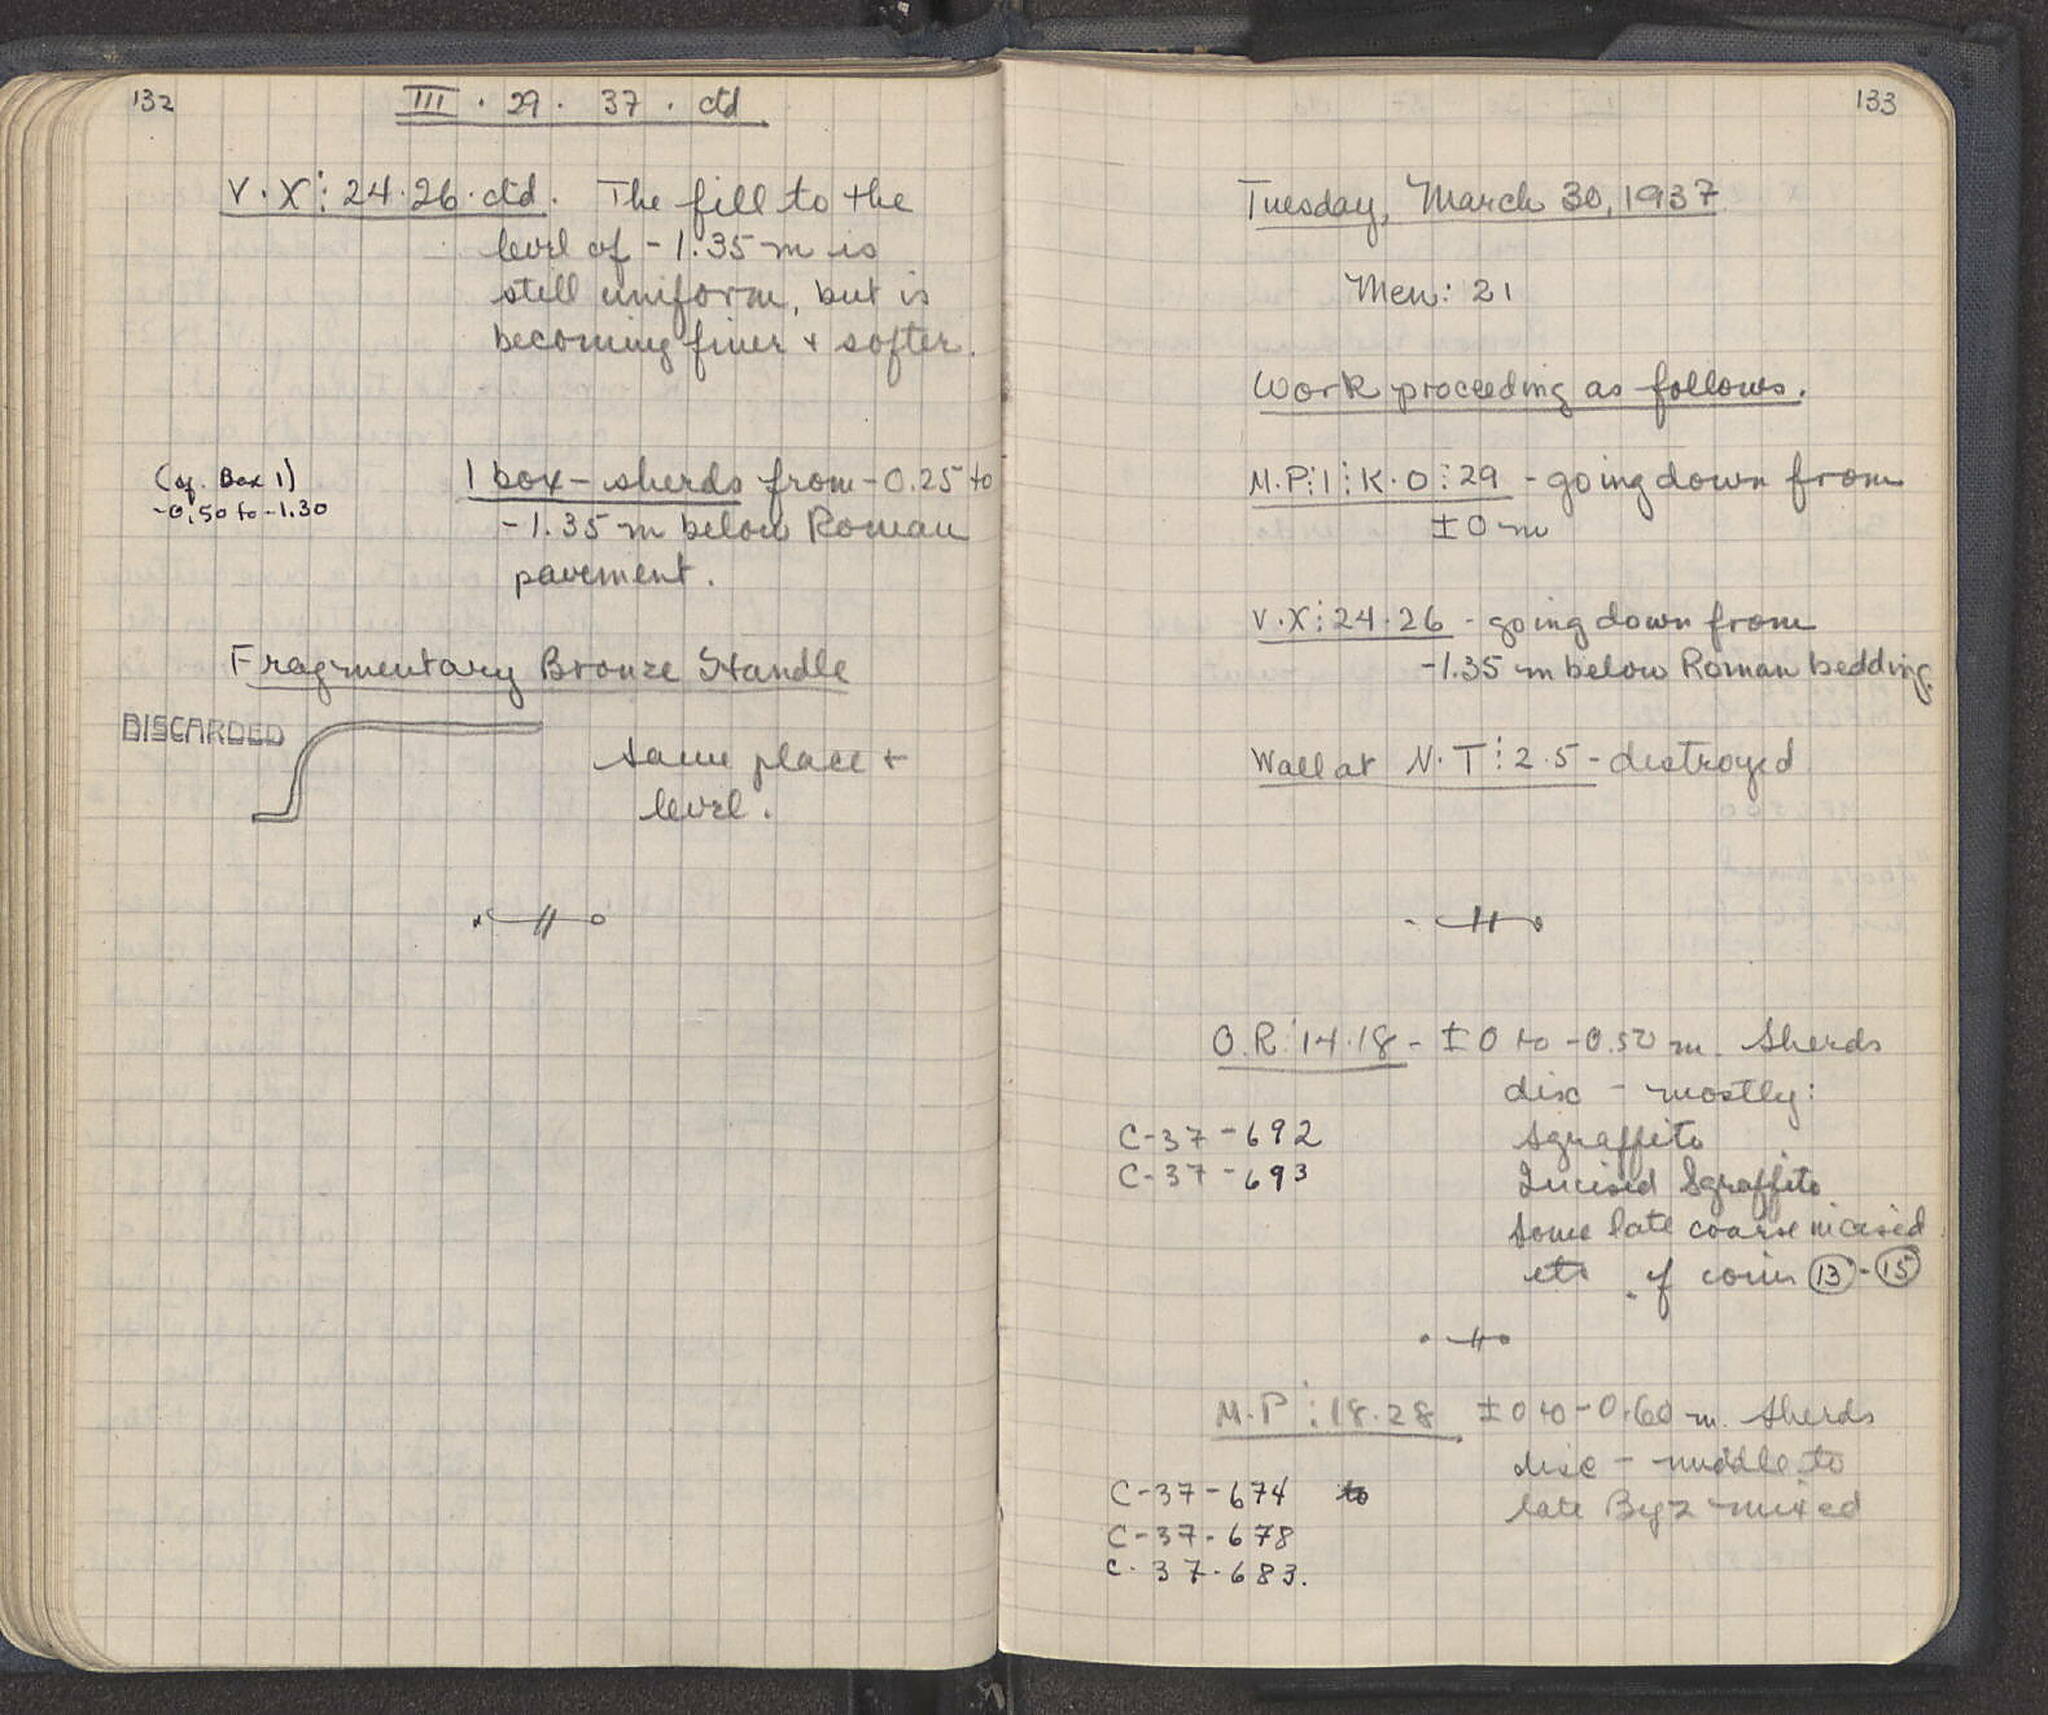 132
III · 29 · 37 · ctd
V·X⋮24·26·ctd. The fill to the
level of -1.35 m is
still uniform, but is
becoming finer + softer.
(cf. Box 1)
-0.50 to -1.30
1 box - sherds from -0.25 to
-1.35 m below Roman
pavement.
Fragmentary Bronze Handle
DISCARDED
same place +
level.
133
Tuesday, March 30, 1937
Men: 21
Work proceeding as follows.
M.P⋮1⋮K·O⋮29 - going down from
±0 m
V·X⋮24·26 - going down from
-1.35 m below Roman bedding.
Wall at N·T⋮2·5 - destroyed
O.R⋮14·18 - ±0 to -0.50 m. Sherds
disc - mostly:
C-37-692
Sgraffito
C-37-693
Incised Sgraffito
some late coarse incised
etc cf coins 13 - 15
M·P⋮18·28 ±0 to -0.60 m. Sherds
disc - middle to
late Byz mixed
C-37-674 to
C-37-678
C-37-683.